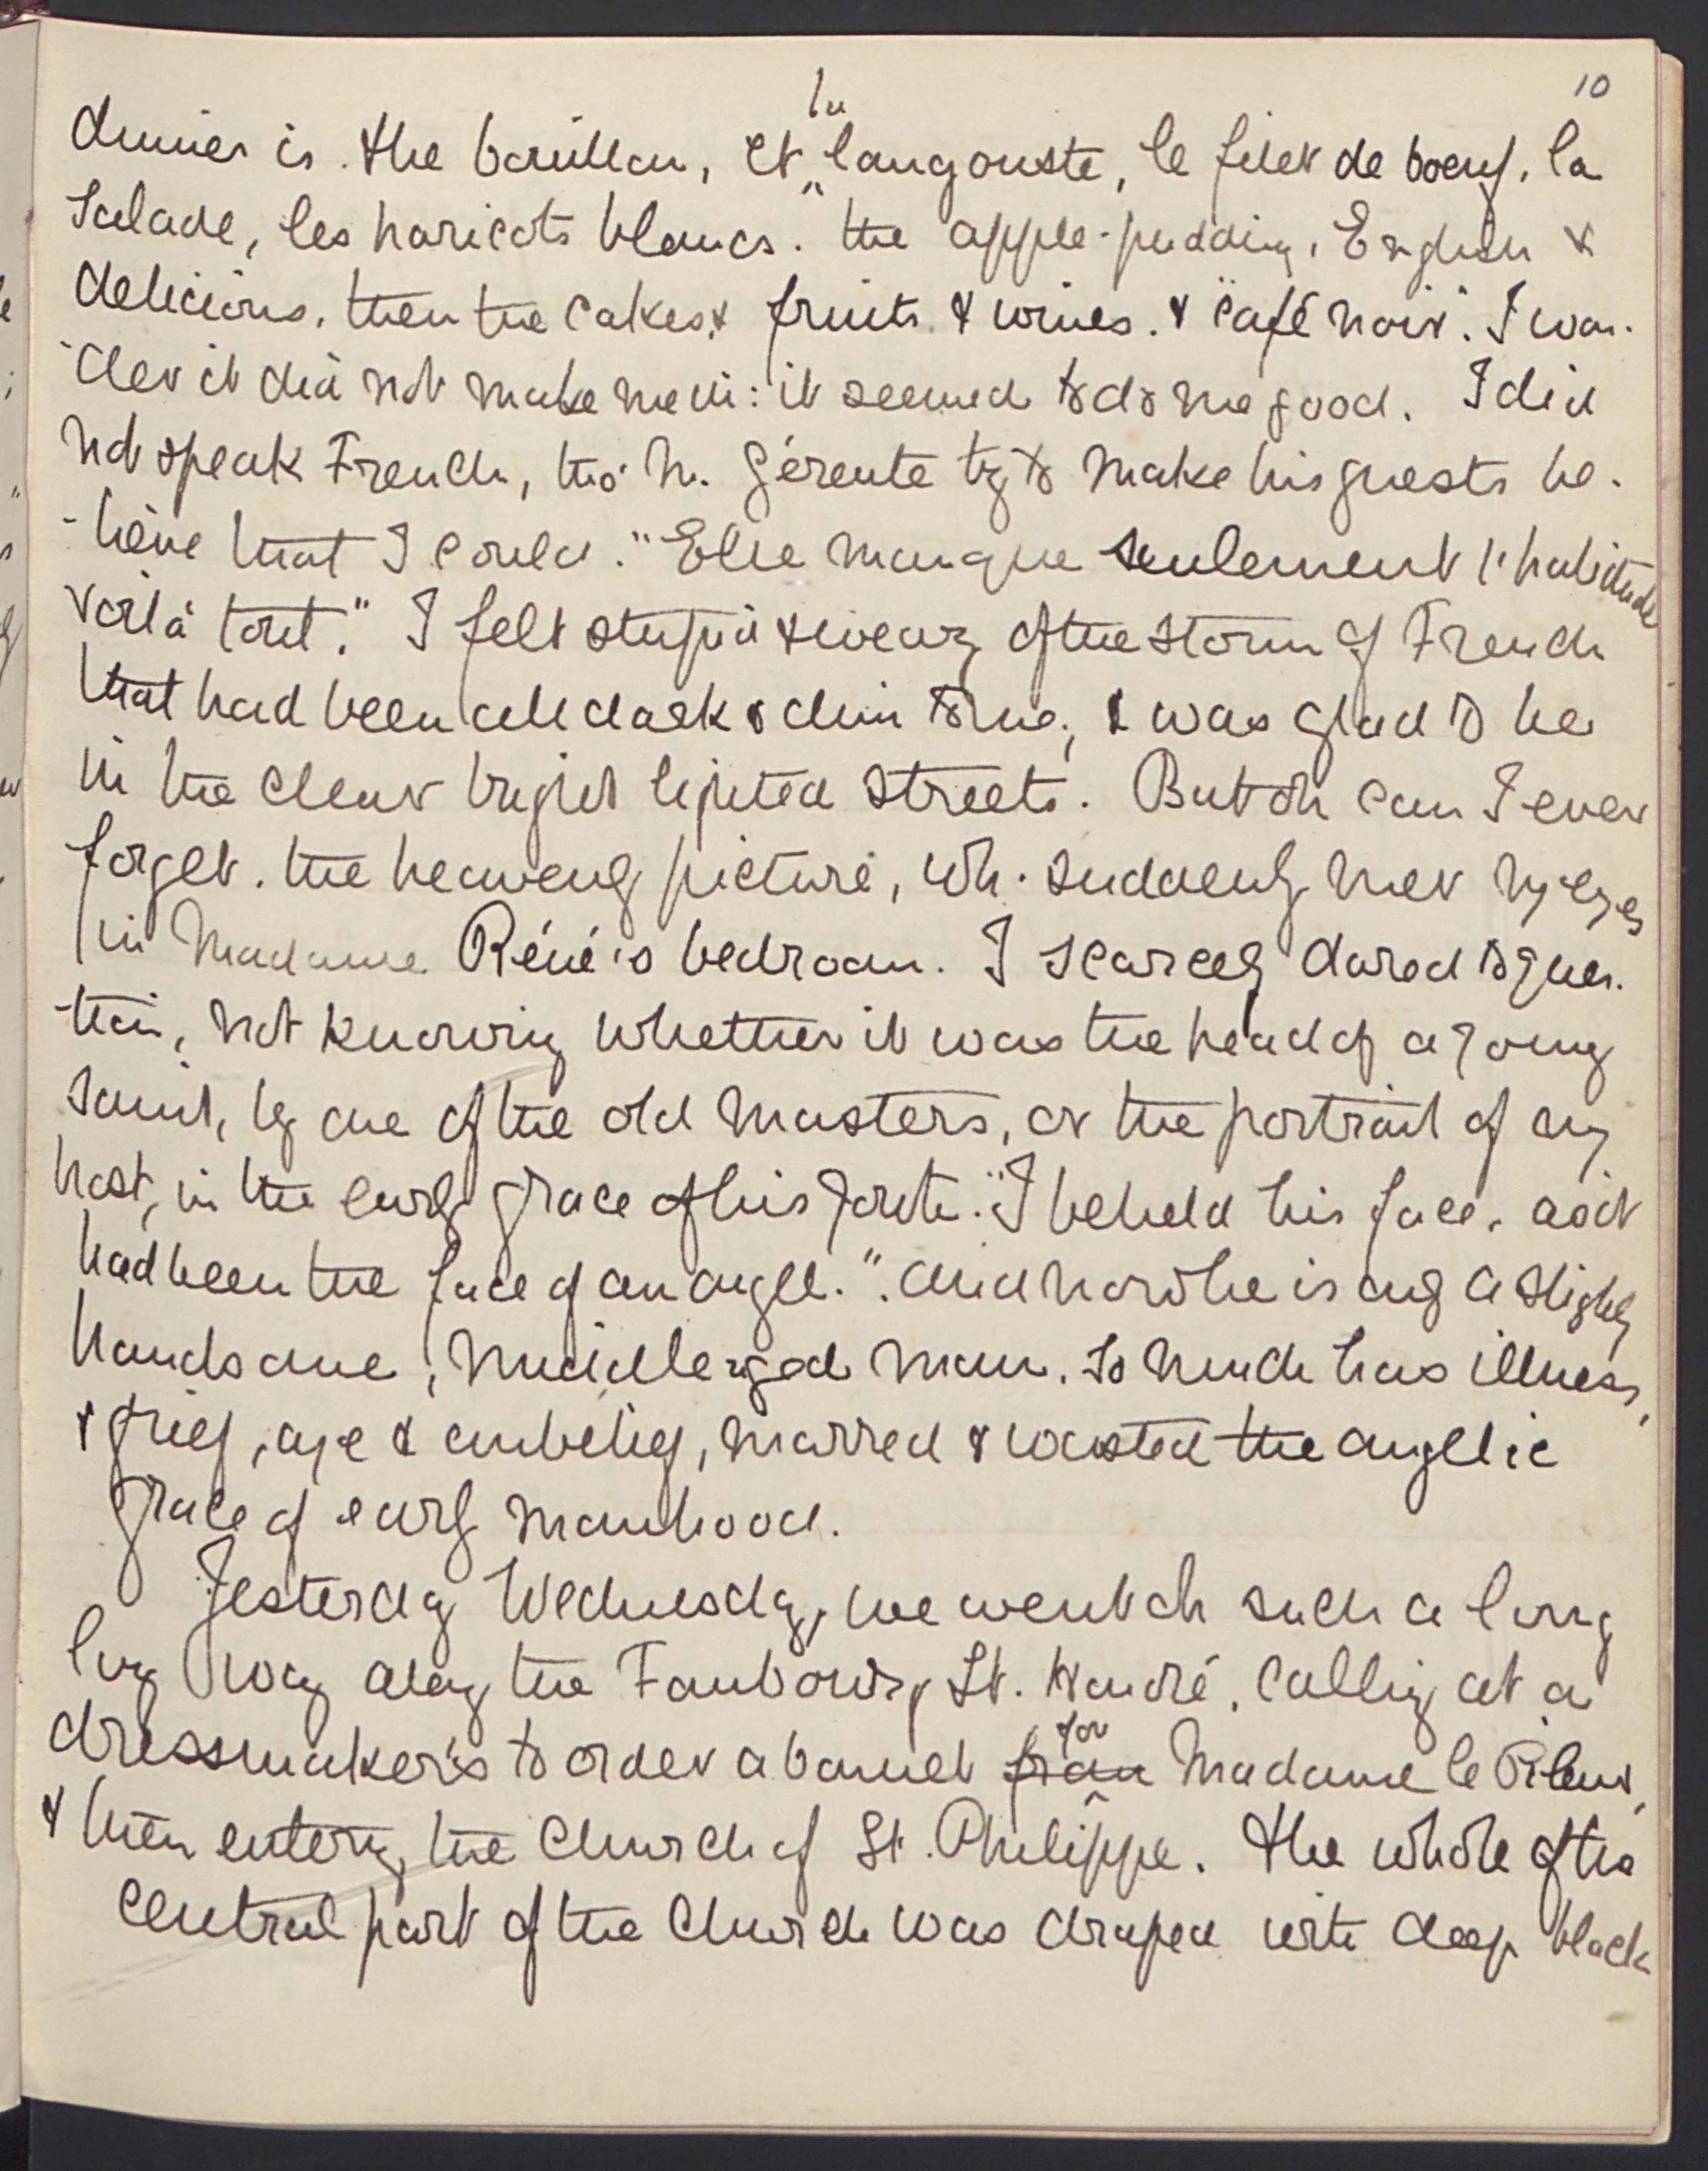 10
dinner is. the bouillon, et la langouste, le filet de boeuf, la
Salade, les haricots blancs." the apple-pudding, English &
delicious, then the cakes, & fruits & wines. & "café noir". I won-
-der it did not make me ill: it seemed to do me good. I did
not speak French, tho' M. Gérente try to make his guests be-
-lieve that I could. "Elle manque seulement l'habitude
voilà tout." I felt stupid & weary of the storm of French
that had been all dark & dim to me, & was glad to be
in the clear bright lighted streets. But oh can I ever
forget. the heavenly picture, wh. suddenly met my eyes
in Madame Réné's bedroom. I scarcely dared to ques-
-tion, not knowing whether it was the head of a young
Saint, by one of the old Masters, or the portrait of my
host, in the early grace of his youth. "I beheld his face, as it
had been the face of an angel.". And now he is only a slightly
handsome, middle aged man. So much has illness,
& grief, age & unbelief, marred & wasted the angelic
grace of early manhood.
Yesterday Wednesday, we went oh such a long
long way along the Faubourg St. Honoré, calling at a
dressmaker's to order a bonnet from for Madame le
& then entering the Church of St. Philippe. The whole of the
central part of the Church was draped with deep black